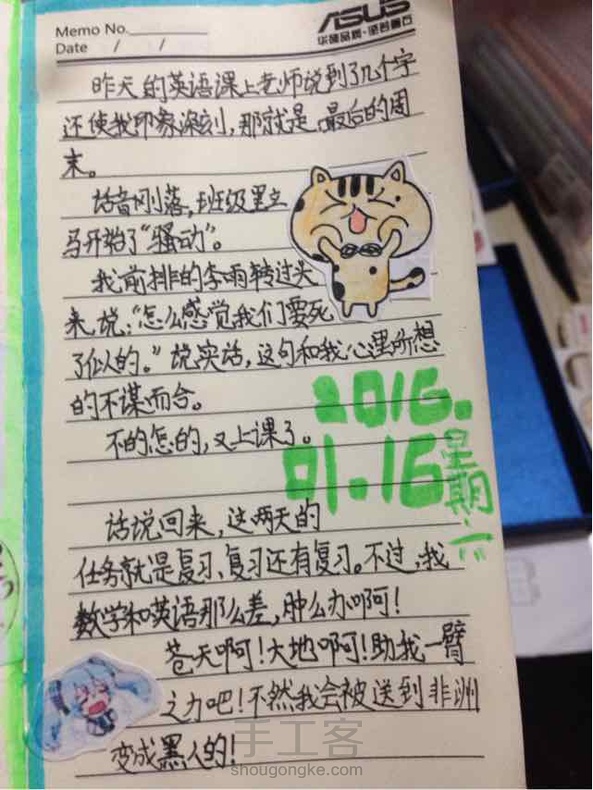 Memo No.
Date / /
ASUS
华硕品质·坚若磐石
昨天的英语课上老师说到了几个字
还使我印象深刻,那就是 最后的周
末。
话音刚落,班级里立
马开始了“骚动”。
我前排的李雨转过头
来,说:“怎么感觉我们要死
了似的。”说实话,这句和我心里所想
的不谋而合。
不的怎的,又上课了。
2016.
01.16
星期六
话说回来,这两天的
任务就是复习、复习还有复习。不过,我
数学和英语那么差,肿么办啊!
苍天啊!大地啊!助我一臂
之力吧!不然我会被送到非洲
变成黑人的!
手工客
shougongke.com